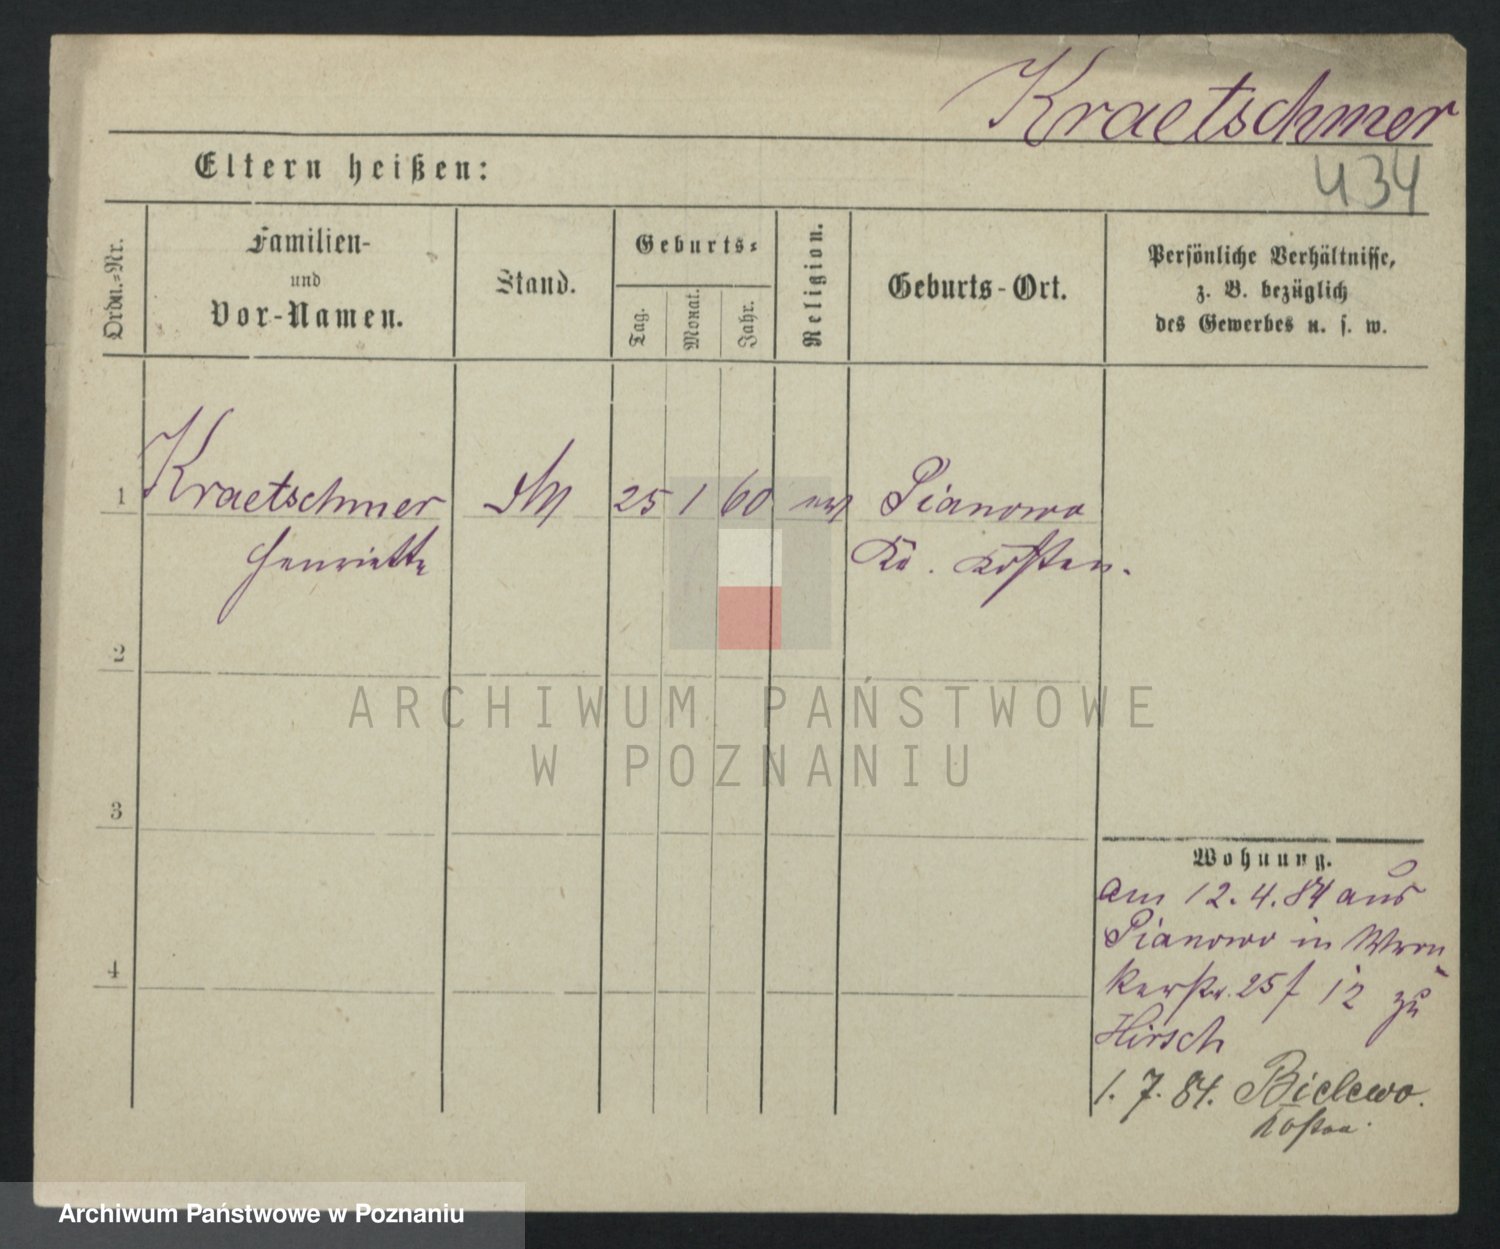 Kraetschmer
434
Eltern heißen:
Ordn.-Nr.
Familien-
und
Vor-Namen.
Stand.
Geburts-
Tag.
Monat.
Jahr.
Religion.
Geburts-Ort.
Persönliche Verhältnisse,
z. B. bezüglich
des Gewerbes u. s. w.
1
Kraetschmer
25 1 60
Pianowo
Henriette
Kr. Kosten.
2
ARCHIWUM PAŃSTWOWE
W POZNANIU
3
Wohnung.
am 12.4.84 aus
Pianowo in Wron
kerstr. 25 f 12 zu
Hirsch
1.7.84. Bielewo.
Kosten.
4
Archiwum Państwowe w Poznaniu